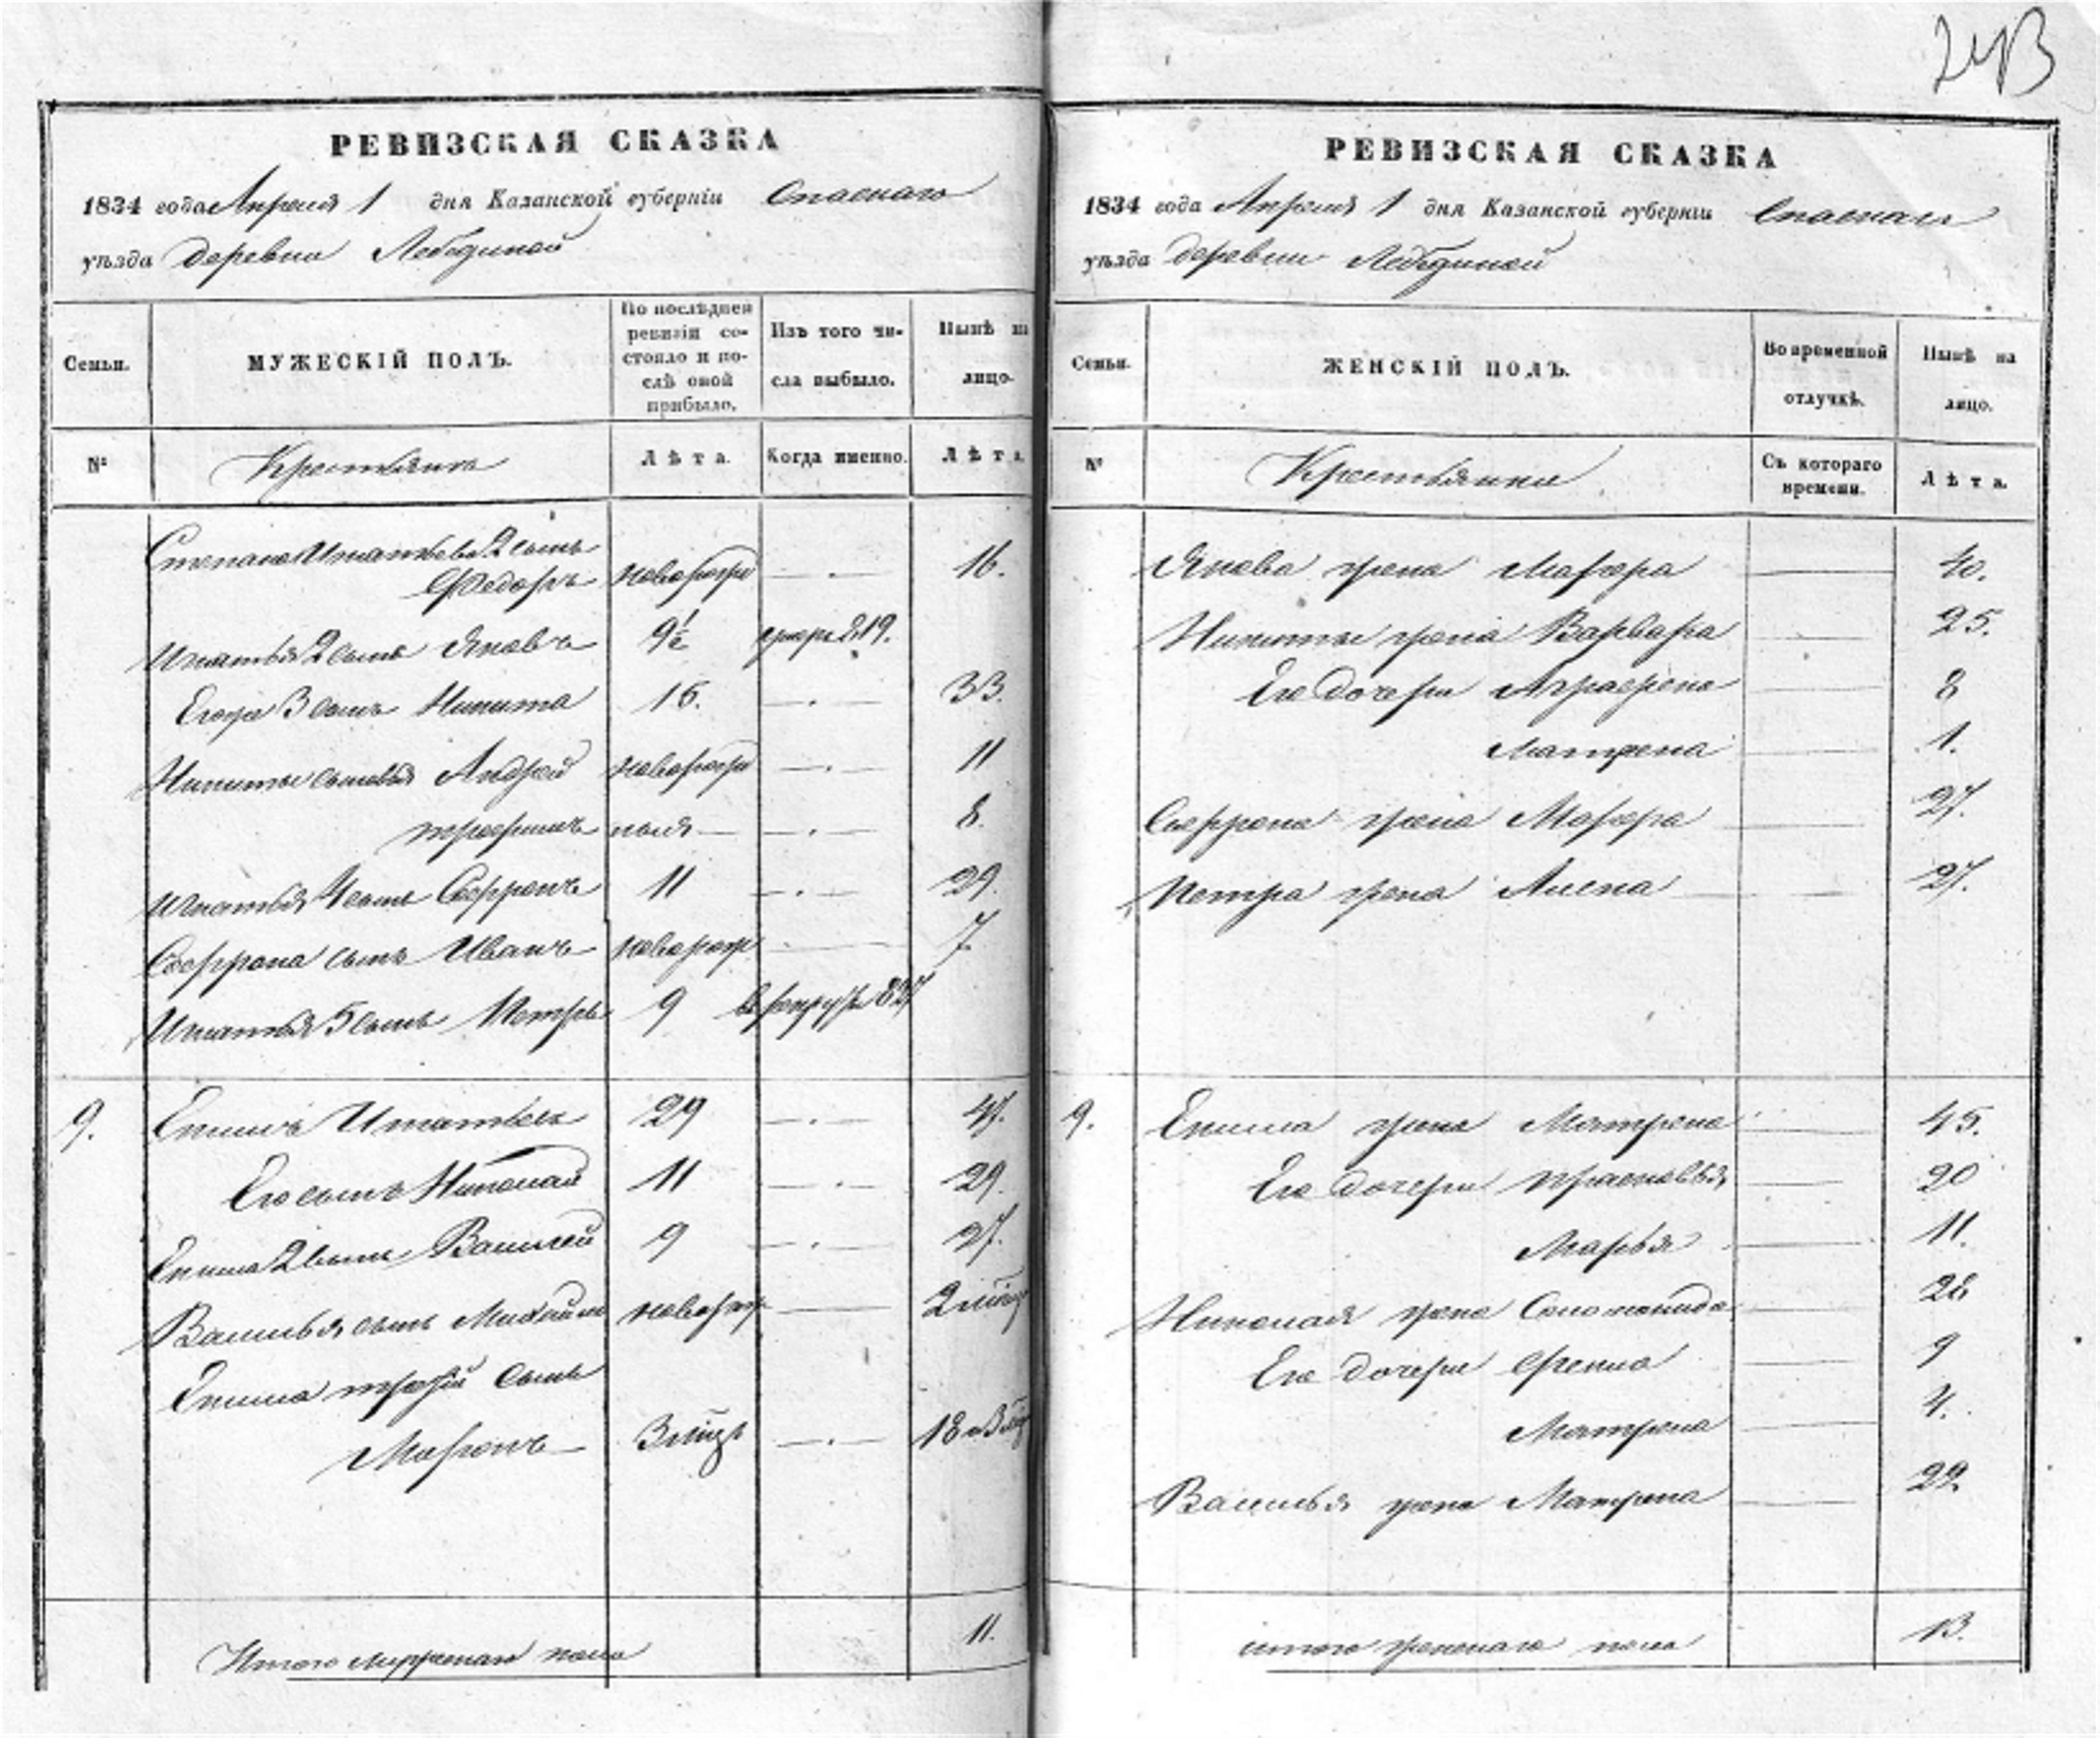 243
РЕВИЗСКАЯ СКАЗКА
1834 года Апреля 1 дня Казанской губерніи Спаскаго
уѣзда деревни Лебединой
Семьи.
МУЖЕСКІЙ ПОЛЪ.
По послѣдней ревизіи состояло и послѣ оной прибыло.
Изъ того числа выбыло.
Нынѣ на лицо.
№
Крестьяне
Лѣта.
Когда именно.
Лѣта.
Степана Игнатьева 2 сынъ
Федоръ новорожд 16.
Игнатья 2 сынъ Яковъ 9½ 819.
Егора 3 сынъ Никита 15. 33.
Никиты сыновья Андрей новорожд 11
Трофимъ 8.
Игнатья 4 сынъ Софронъ 11 29.
Софрона сынъ Иванъ новорож 7
Игнатья 5 сынъ Петръ 9 в рекруты 827
9. Епимъ Игнатьевъ 29 47.
Его сынъ Николай 11 29.
Епима 2 сынъ Василей 9 27.
Василья сынъ Михайло новорож 2
Епима третій сынъ
Миронъ 3 18
Итого мужеска пола 11.
РЕВИЗСКАЯ СКАЗКА
1834 года Апреля 1 дня Казанской губерніи Спаскаго
уѣзда деревни Лебединой
Семьи.
ЖЕНСКІЙ ПОЛЪ.
Во временной отлучкѣ.
Нынѣ на лицо.
№
Крестьянки
Съ котораго времени.
Лѣта.
Якова жена Мавра 40.
Никиты жена Варвара 25.
Его дочери Аграфена 8
Матрена 1.
Софрона жена Мавра 27.
Петра жена Алена 27.
9. Епима жена Матрена 45.
Его дочери Прасковья 20
Марья 11.
Николая жена Соломонида 28
Его дочери 9
Матрена 4.
Василья жена Матрена 22.
итого женскаго пола 13.